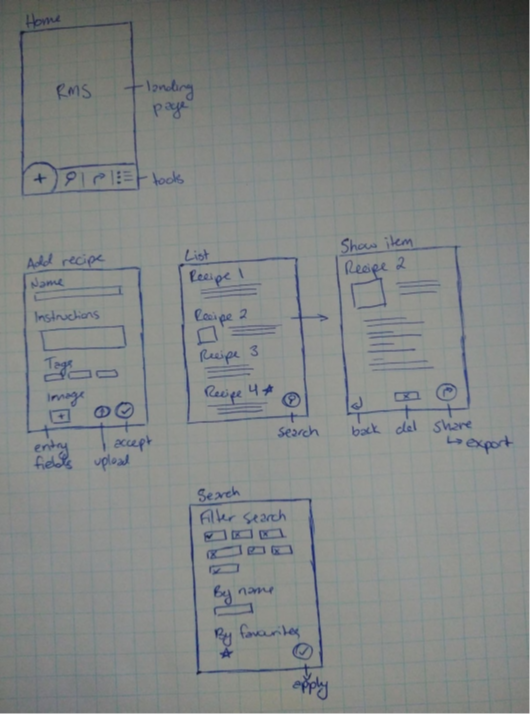 Home
RMS
landing
page
tools
Add recipe
Name
Instructions
Tags
Image
entry
fields
upload
accept
List
Recipe 1
Recipe 2
Recipe 3
Recipe 4
search
Show item
Recipe 2
back
del
share
export
Search
Filter search
By name
By favourites
apply